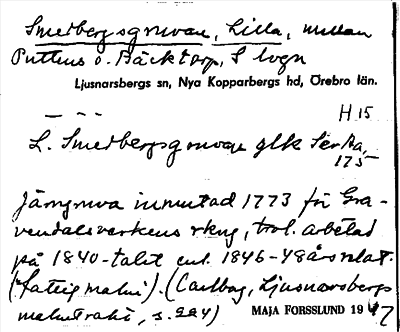 Smedbergsgruvan, Lilla, mellan
Puttens o. Bäcktorp, S logn
Ljusnarsbergs sn, Nya Kopparbergs hd, Örebro län.
— — —
H 15
L. Smedbergsgruvan glk Ser Ra,
175-
Järngruva inmutad 1773 för Gra-
vendalsverkens rkng, trol. arbetad
på 1840-talet enl. 1846-48 årsrelat.
("fattig malm"). (Carlborg, Ljusnarsbergs
malmtrakt, s. 224)
MAJA FORSSLUND 1947